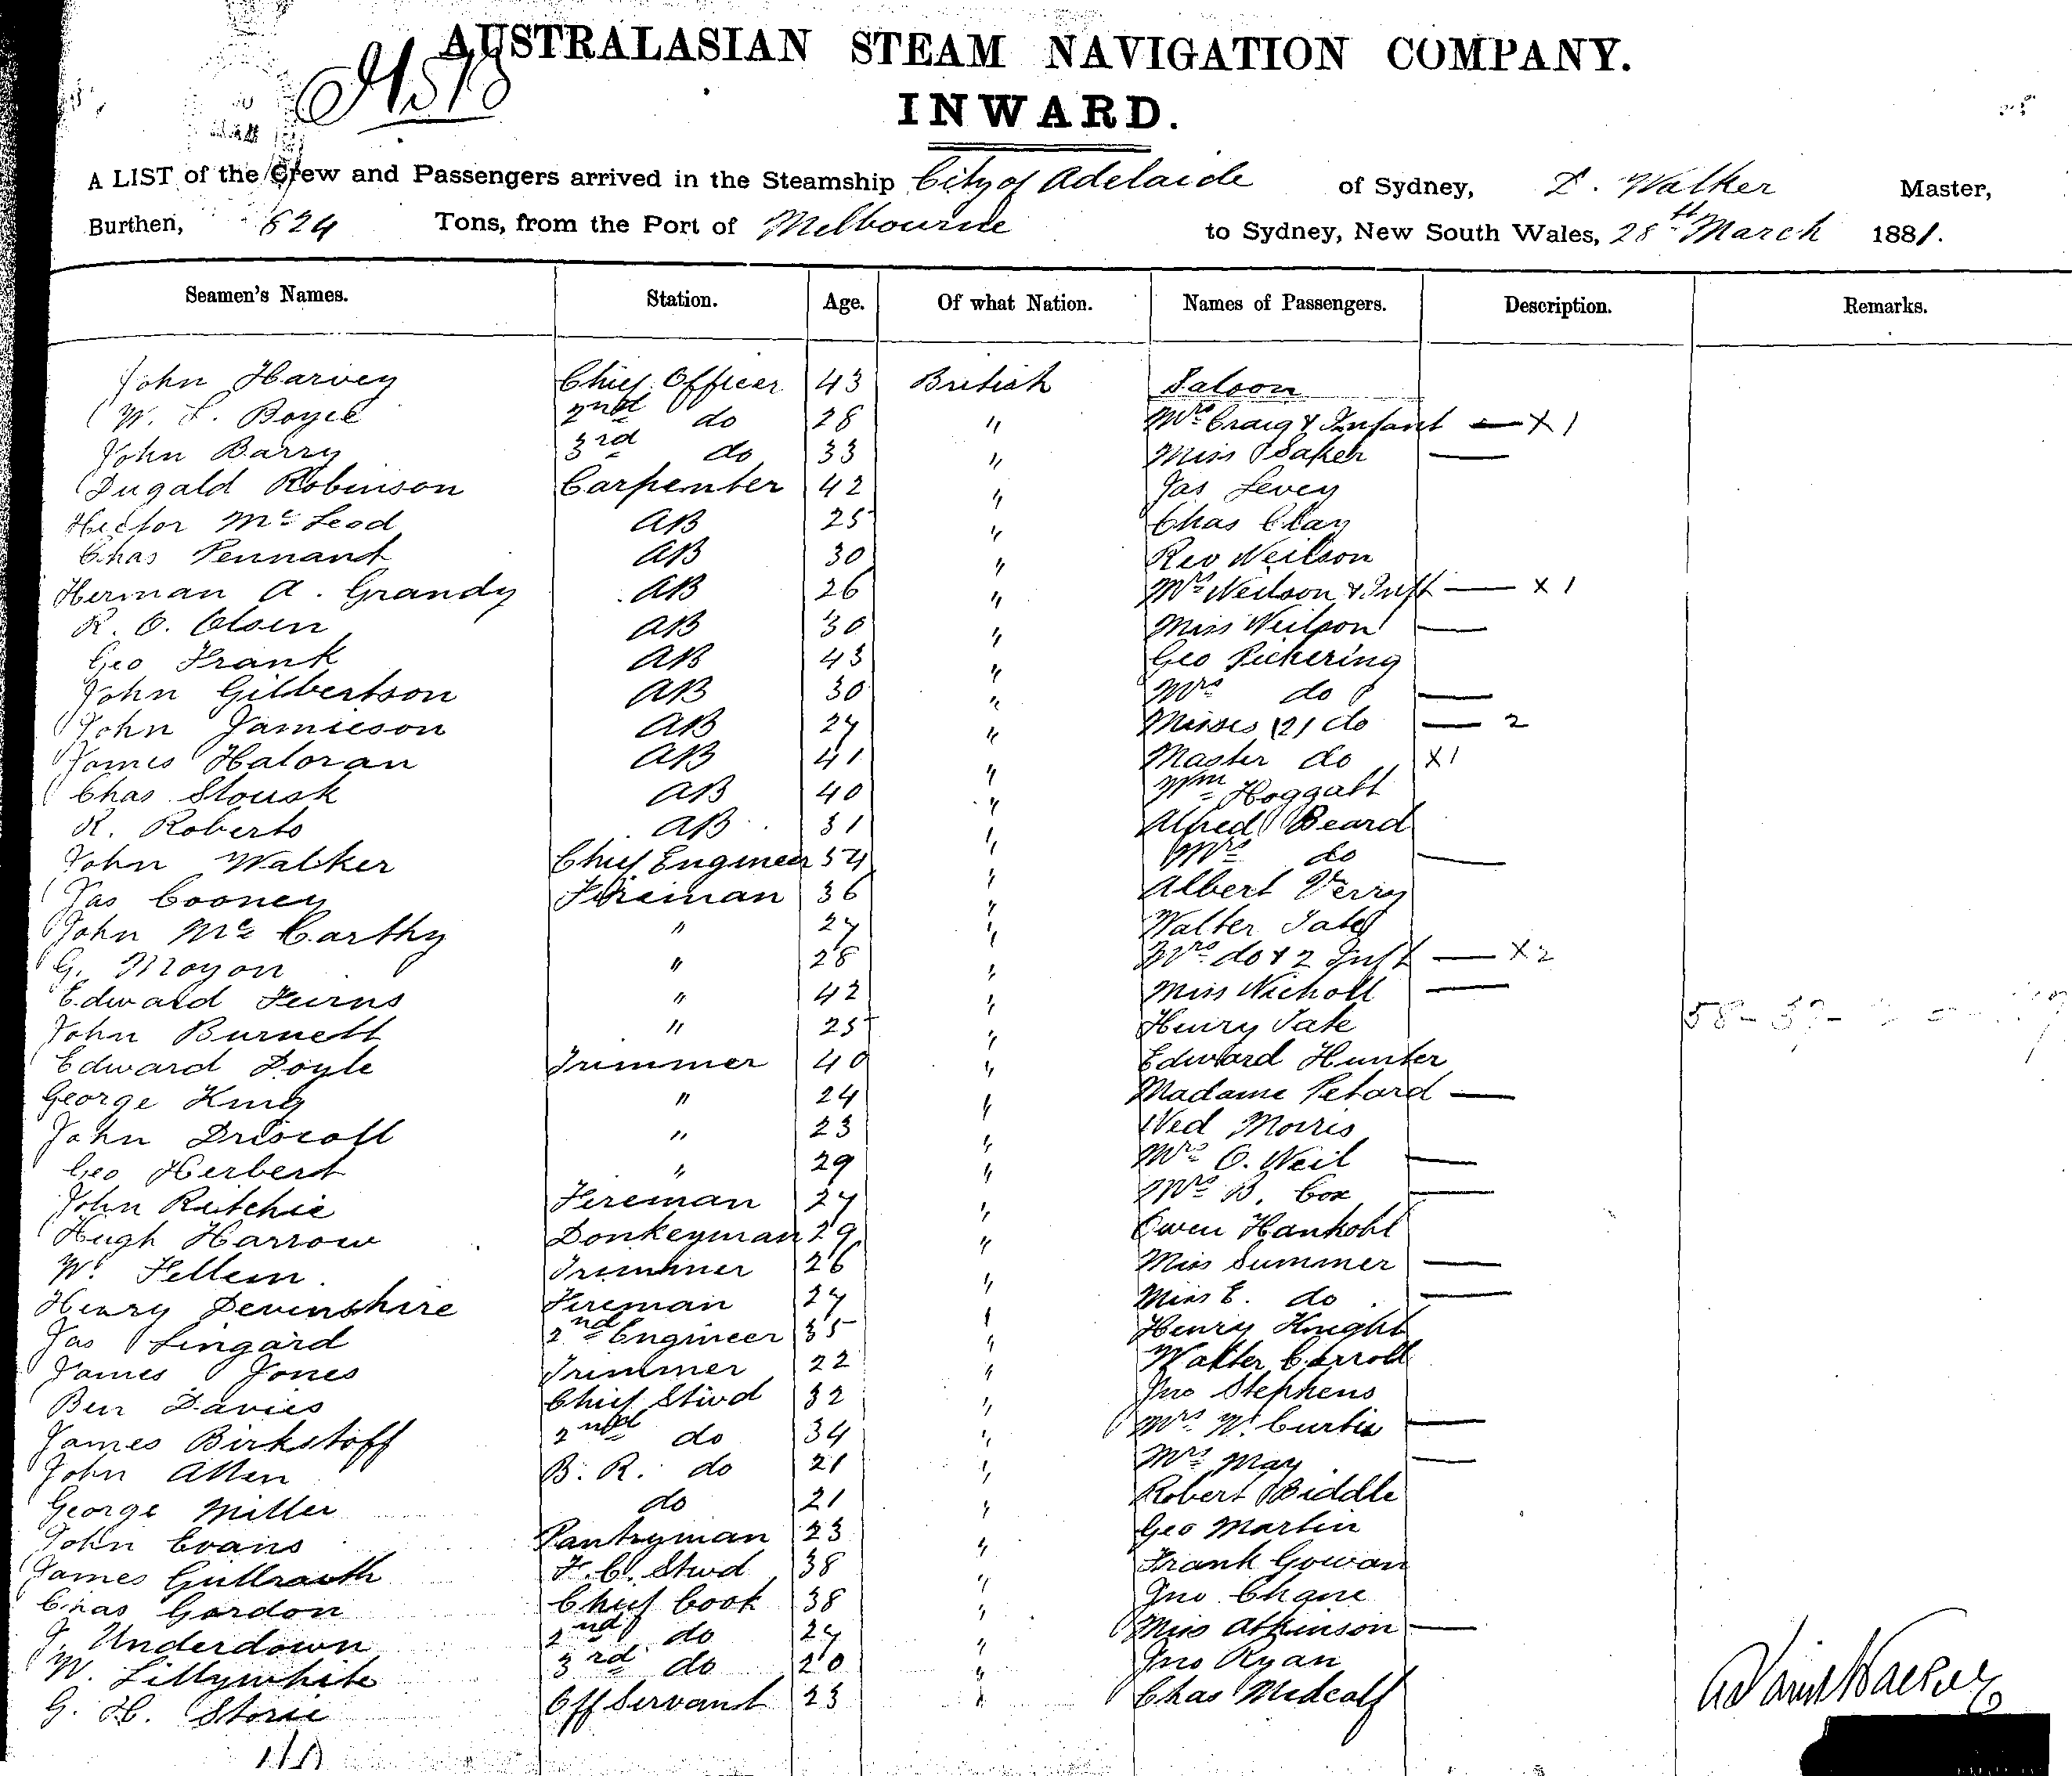 AUSTRALASIAN STEAM NAVIGATION COMPANY.
INWARD.
A LIST of the Crew and Passengers arrived in the Steamship City of Adelaide of Sydney, D. Walker Master,
Burthen, 824 Tons, from the Port of Melbourne to Sydney, New South Wales, 28th March 1881.
Seamen's Names. Station. Age. Of what Nation. Names of Passengers. Description. Remarks.
John Harvey Chief Officer 43 British Saloon
W. L. Boyce 2nd do 28 " Mrs Craig & Infant — X 1
John Barry 3rd do 33 " Miss Baker —
Dugald Robinson Carpenter 42 " Jas Levey
Hector Mc Leod AB 25 " Chas Clay
Chas Pennant AB 30 " Rev Neilson
Herman A. Grandy AB 26 " Mrs Neilson & Inft — X 1
R. O. Olsen AB 30 " Miss Neilson —
Geo Frank AB 43 " Geo Pickering
John Gilbertson AB 30 " Mrs do —
John Jamieson AB 27 " Misses (2) do — 2
James Haloran AB 41 " Master do X 1
Chas AB 40 " Wm Hoggatt
R. Roberts AB 31 " Alfred Beard
John Walker Chief Engineer 54 " Mrs do —
Jas Cooney Fireman 36 " Albert Verry
John Mc Carthy " 27 " Walter Tate
G. Moyon " 28 " Mrs do & 2 Inft — X 2
Edward Furns " 42 " Miss Nicholl —
John Burnett " 25 " Henry Tate
Edward Doyle Trimmer 40 " Edward Hunter
George King " 24 " Madame Petard —
John Driscoll " 23 " Ned Morris
Geo Herbert " 29 " Mrs O. Weil —
John Ritchie Fireman 27 " Mrs B. Cox —
Hugh Harrow Donkeyman 29 " Owen Hankohl
W. Fellem Trimmer 26 " Miss Summer —
Henry Devenshire Fireman 27 " Miss E. do —
Jas Lingard 2nd Engineer 35 " Henry Knight
James Jones Trimmer 22 " Walter Carroll
Ben Davies Chief Stwd 32 " Jno Stephens
James Birkstoff 2nd do 34 " Mrs W. Curtis —
John Allen B. R. do 21 " Mrs May —
George Miller do 21 " Robert Biddle
John Evans Pantryman 23 " Geo Martin
James F. C. Stwd 38 " Frank Gowan
Chas Gordon Chief Cook 38 " Jno Chane
J. Underdown 2nd do 27 " Miss Atkinson —
W. Lillywhite 3rd do 20 " Jno Ryan
G. H. Storie Off Servant 23 " Chas Medcalf